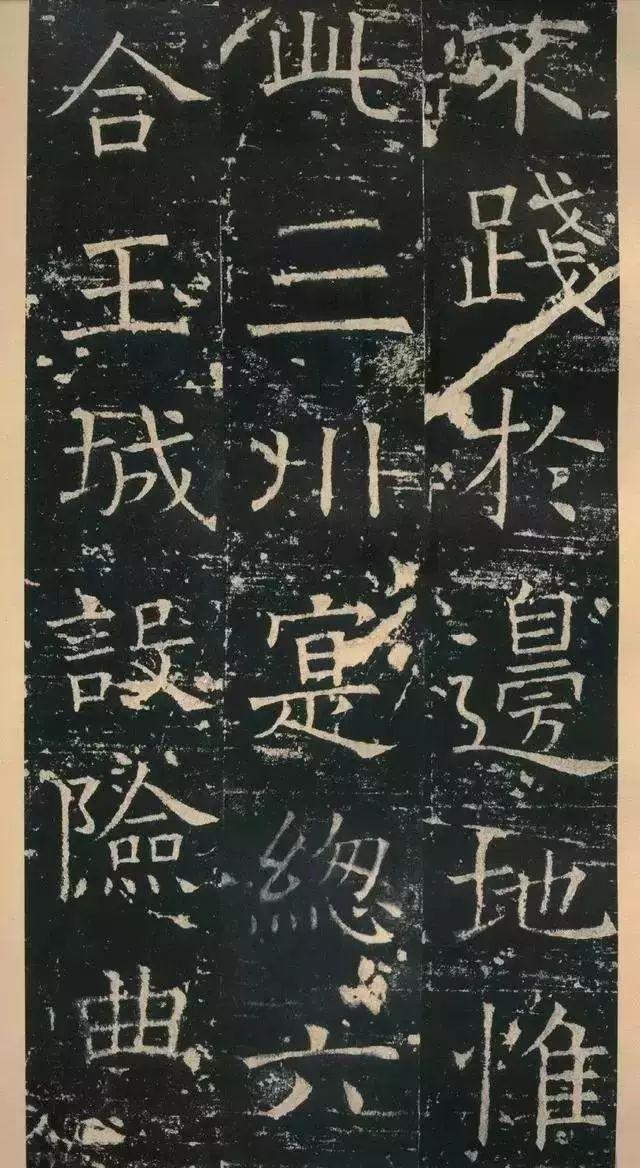 不踐於邊地惟
此三州寔緫六
合王城設險曲